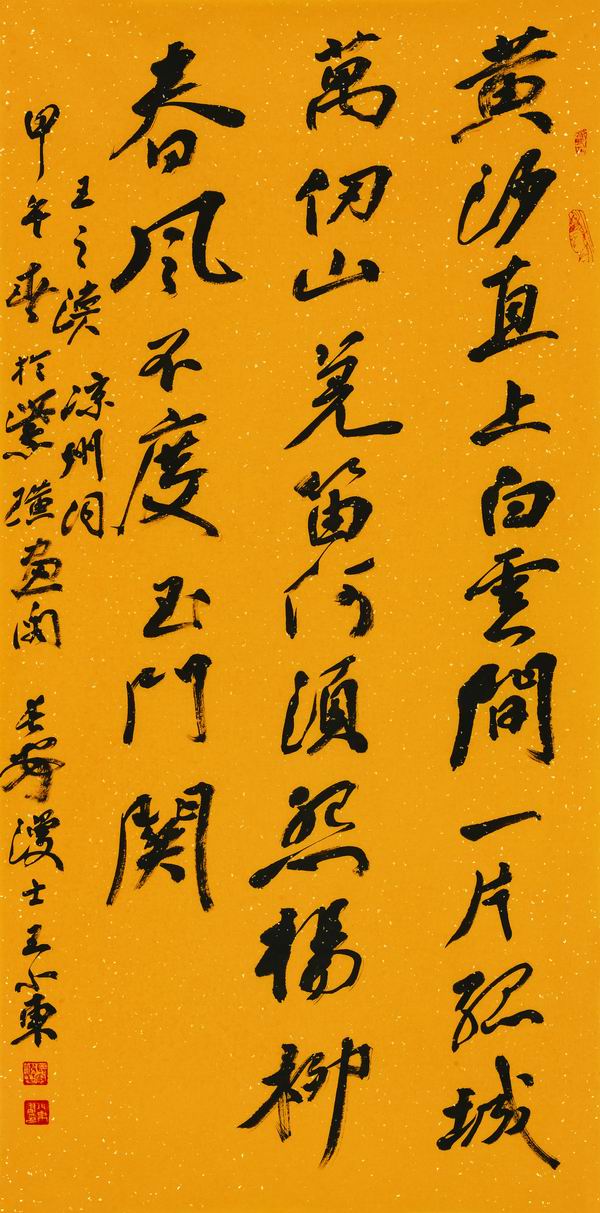 黄沙直上白雲間一片孤城
萬仞山羌笛何須怨楊柳
春風不度玉門関
王之渙凉州詞
甲午春於紫璜画閣長安漫士王小東